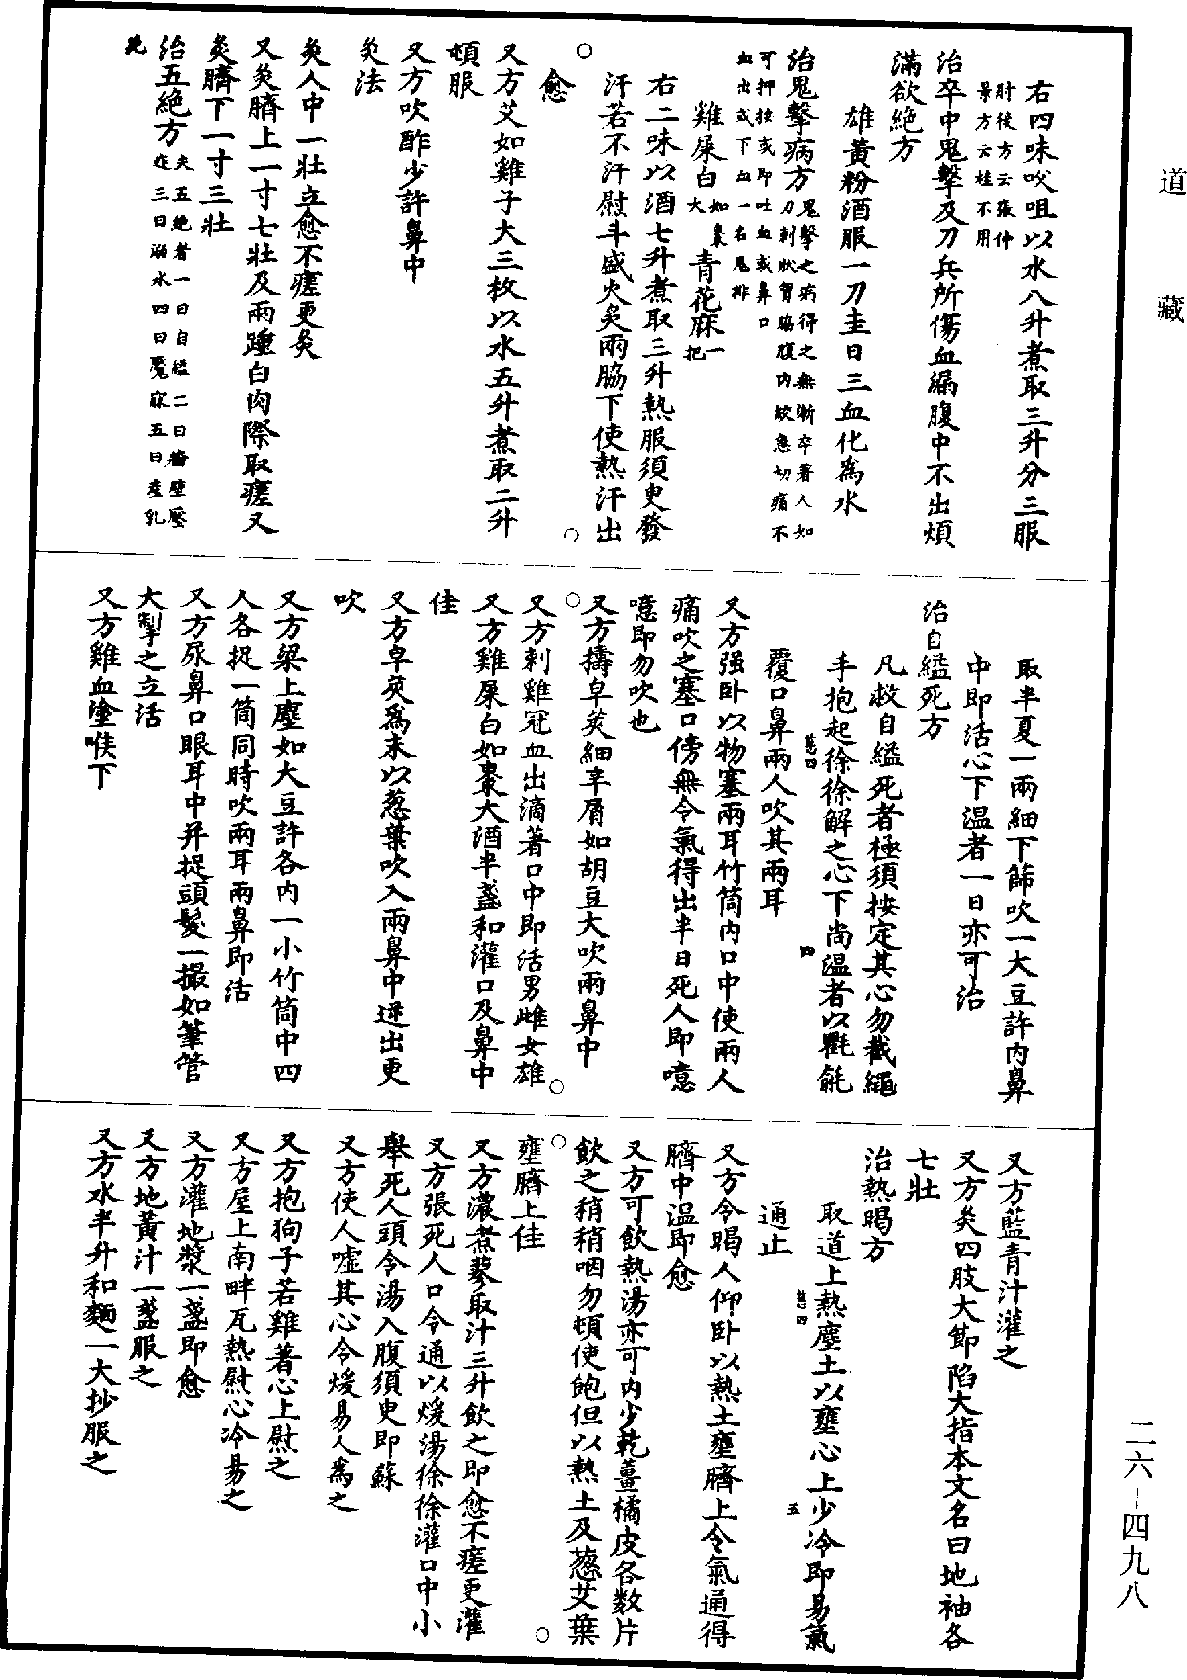 道藏
右四味㕮咀以水八升煮取三升分三服
肘後方云張仲
景方云桂不用
治卒中鬼擊及刀兵所傷血漏腹中不出煩
滿欲絶方
雄黄粉酒服一刀圭日三血化為水
治鬼擊病方鬼擊之病得之無漸卒著人如
刀刺狀胷脇腹内絞急切痛不
可押按或即吐血或鼻口
血出或下血一名鬼排
雞屎白如棗大青花麻一把
右二味以酒七升煮取三升熱服須臾發
汗若不汗熨斗盛火灸兩脇下使熱汗出
愈
又方艾如雞子大三枚以水五升煮取二升
頓服
又方吹酢少許鼻中
灸法
灸人中一壯立愈不瘥更灸
又灸臍上一寸七壯及兩踵白肉際取瘥又
灸臍下一寸三壯
治五絶方夫五絶者一曰自縊二曰牆壁壓
迮三曰溺水四曰魘寐五曰産乳
死
取半夏一兩細下篩吹一大豆許内鼻
中即活心下温者一日亦可治
治自縊死方
凡救自縊死者極須按定其心勿截繩
手抱起徐徐解之心下尚温者以氍毹
覆口鼻兩人吹其兩耳
又方强卧以物塞兩耳竹筒内口中使兩人
痛吹之塞口傍無令氣得出半日死人即噫
噫即勿吹也
又方擣皁莢細辛屑如胡豆大吹兩鼻中
又方刺雞冠血出滴著口中即活男雌女雄
又方雞屎白如棗大酒半盞和灌口及鼻中
佳
又方皁莢為末以葱葉吹入兩鼻中逆出更
吹
又方梁上塵如大豆許各内一小竹筒中四
人各捉一筒同時吹兩耳兩鼻即活
又方尿鼻口眼耳中并捉頭髮一撮如筆管
大掣之立活
又方雞血塗喉下
又方藍青汁灌之
又方灸四肢大節陷大指本文名曰地袖各
七壯
治熱暍方
取道上熱塵土以壅心上少冷即易氣
通止
又方令暍人仰卧以熱土壅臍上令氣通得
臍中温即愈
又方可飲熱湯亦可内少乾薑橘皮各數片
飲之稍稍咽勿頓使飽但以熱土及葱艾葉
壅臍上佳
又方濃煮蓼取汁三升飲之即愈不瘥更灌
又方張死人口令通以煖湯徐徐灌口中小
舉死人頭令湯入腹須臾即蘇
又方使人噓其心令煖易人為之
又方抱狗子若雞著心上熨之
又方屋上南畔瓦熱熨心冷易之
又方灌地漿一盞即愈
又方地黄汁一盞服之
又方水半升和麵一大抄服之
二六-四九八